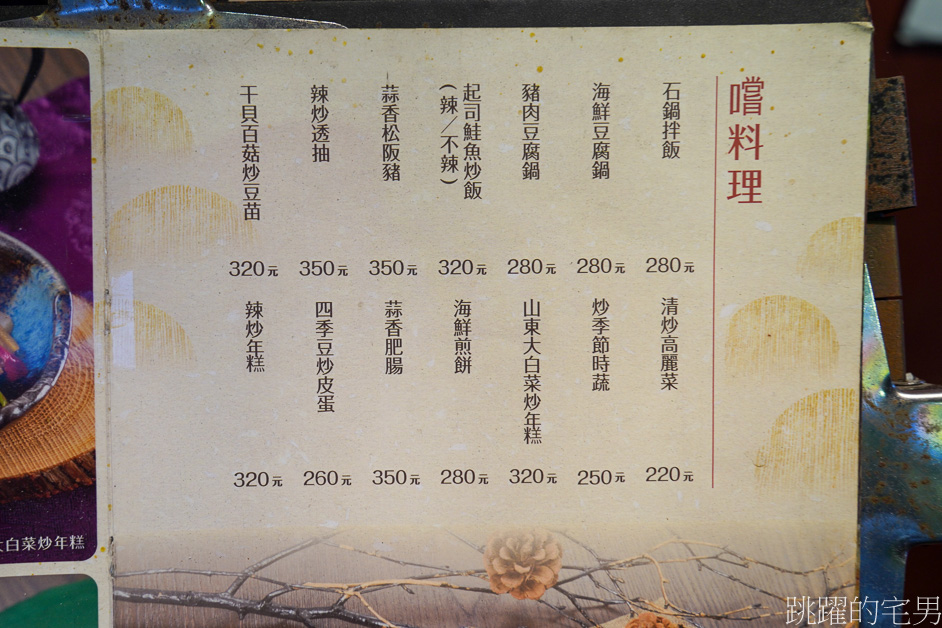 嚐料理
石鍋拌飯
280元
海鮮豆腐鍋
280元
豬肉豆腐鍋
280元
起司鮭魚炒飯
(辣/不辣)
320元
蒜香松阪豬
350元
辣炒透抽
350元
干貝百菇炒豆苗
320元
清炒高麗菜
220元
炒季節時蔬
250元
山東大白菜炒年糕
320元
海鮮煎餅
280元
蒜香肥腸
350元
四季豆炒皮蛋
260元
辣炒年糕
320元
大白菜炒年糕
跳躍的宅男